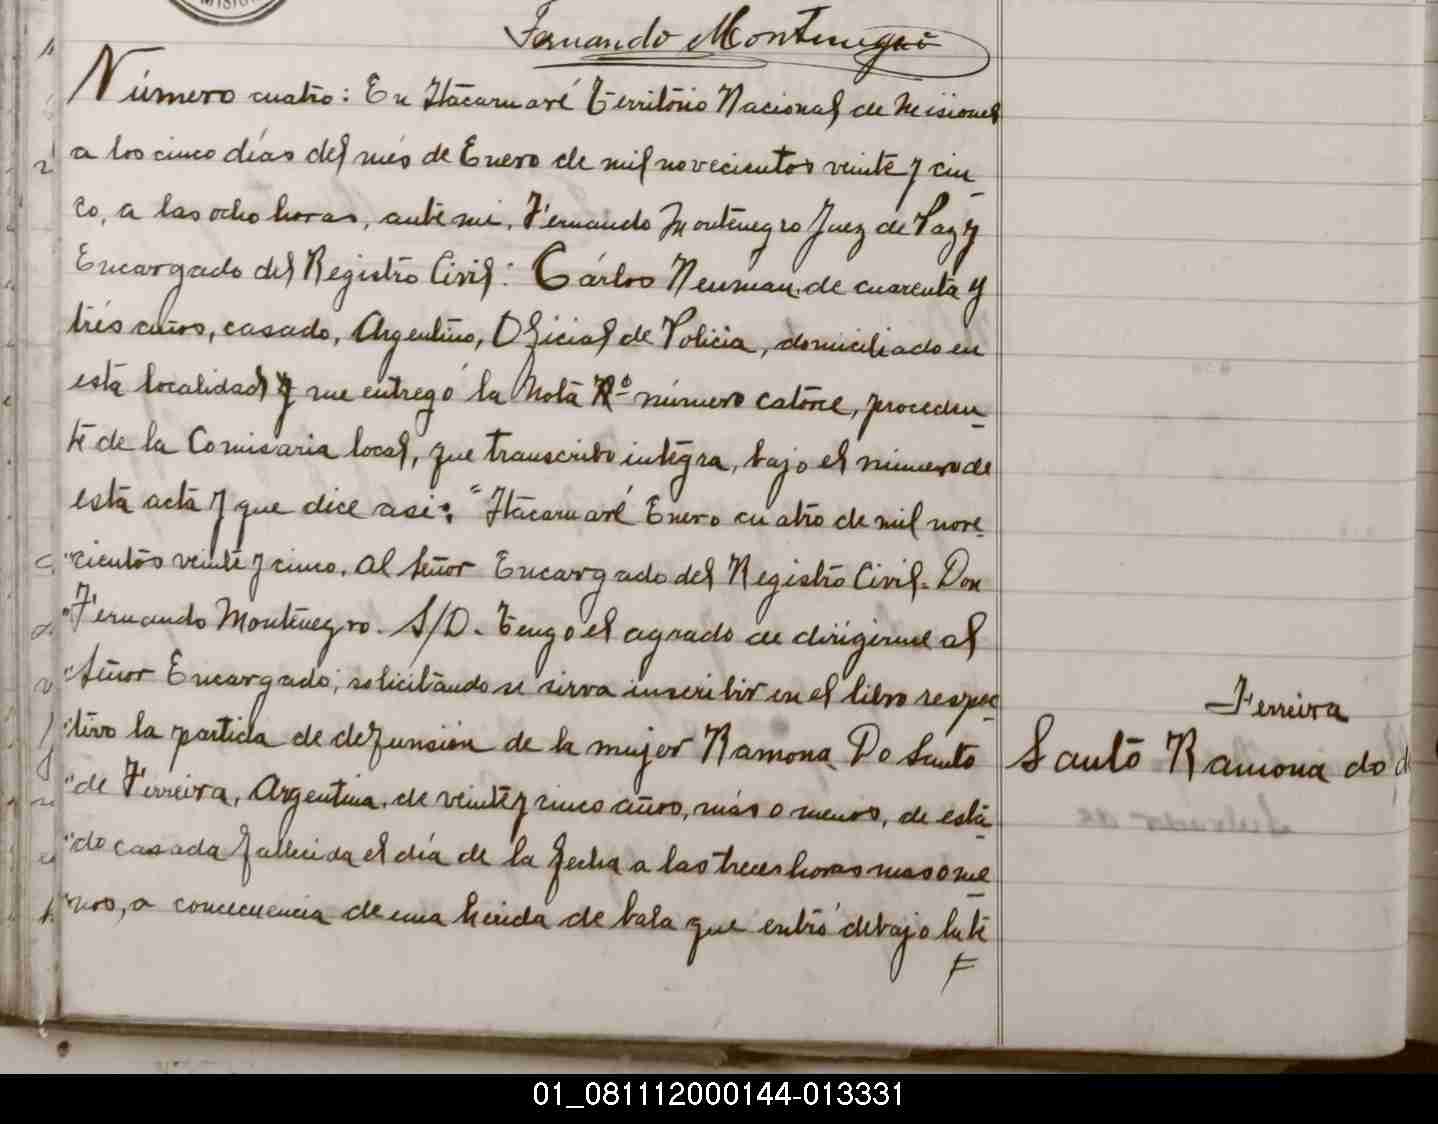 Fernando Montenegro
Número cuatro: En Itacaruaré Território Nacional de Misiones
a los cinco días del més de Enero de mil novecientos veinte y cin-
co, a las ocho horas, ante mi, Fernando Montenegro Juez de Paz y
Encargado del Registro Civil: Cárlos Neuman, de cuarenta y
trés años, casado, Argentino, Oficial de Policia, domiciliado en
esta localidad y me entregó la Nota Nº número catorce, proceden-
te de la Comisaria local, que transcribo integra, bajo el número de
esta acta y que dice asi: "Itacaruaré Enero cuatro de mil nove-
"cientos veinte y cinco. Al Señor Encargado del Registro Civil. Don
"Fernando Montenegro. S/D. Tengo el agrado de dirigirme al
"Señor Encargado; solicitando se sirva inscribir en el libro respec-
"tivo la partida de defunsión de la mujer Ramona Do Santo
"de Ferreira, Argentina, de veinte y cinco años, más o menos, de esta-
"do casada fallecida el día de la fecha a las trece horas mas o me-
"nos, a concecuencia de una herida de bala que entró debajo la te
Ferreira
Santo Ramona do d
01_081112000144-013331